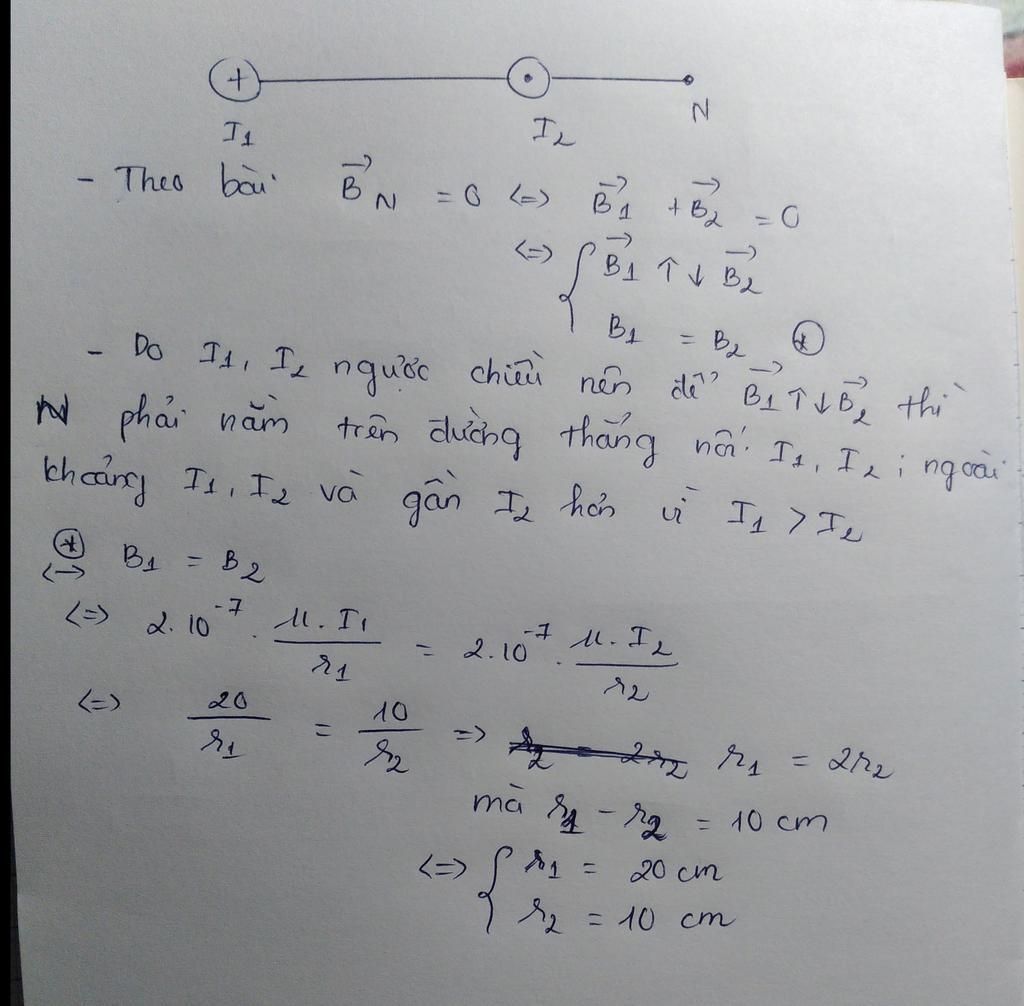 +
I1 I2 N
- Theo bài B⃗N = 0 <=> B⃗1 + B⃗2 = 0
<=> { B⃗1 ↑↓ B⃗2
B1 = B2 (*)
- Do I1, I2 ngược chiều nên để B⃗1 ↑↓ B⃗2 thì
N phải nằm trên đường thẳng nối I1, I2 ; ngoài
khoảng I1, I2 và gần I2 hơn vì I1 > I2
(*) <-> B1 = B2
<=> 2.10^-7 . μ.I1 / r1 = 2.10^-7 . μ.I2 / r2
<=> 20 / r1 = 10 / r2 => r1 = 2r2
mà r1 - r2 = 10 cm
<=> { r1 = 20 cm
r2 = 10 cm